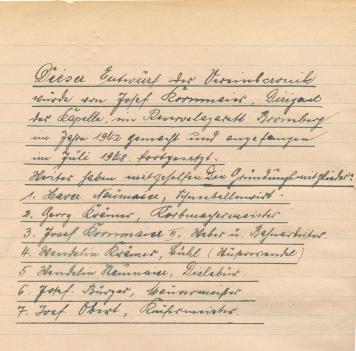 Dieser Entwurf der Vereinscronik
wurde von Josef Kornmaier, Dirigent
der Kapelle, im Reservelazarett Bromberg
im Jahre 1942 gemacht und angefangen
im Juli 1948 fortgesetzt.
Weiter haben mitgeholfen die Gründungsmitglieder:
1. Xaver Neumaier,
2. Georg Krämer, Korbmachermeister
3. Josef Kornmaier II. Weber u. Bahnarbeiter.
4. Wendelin Krämer, Bühl
5 Wendelin Neumaier,
6. Josef Bürger, Maurermeister
7. Josef Obert, Küfermeister